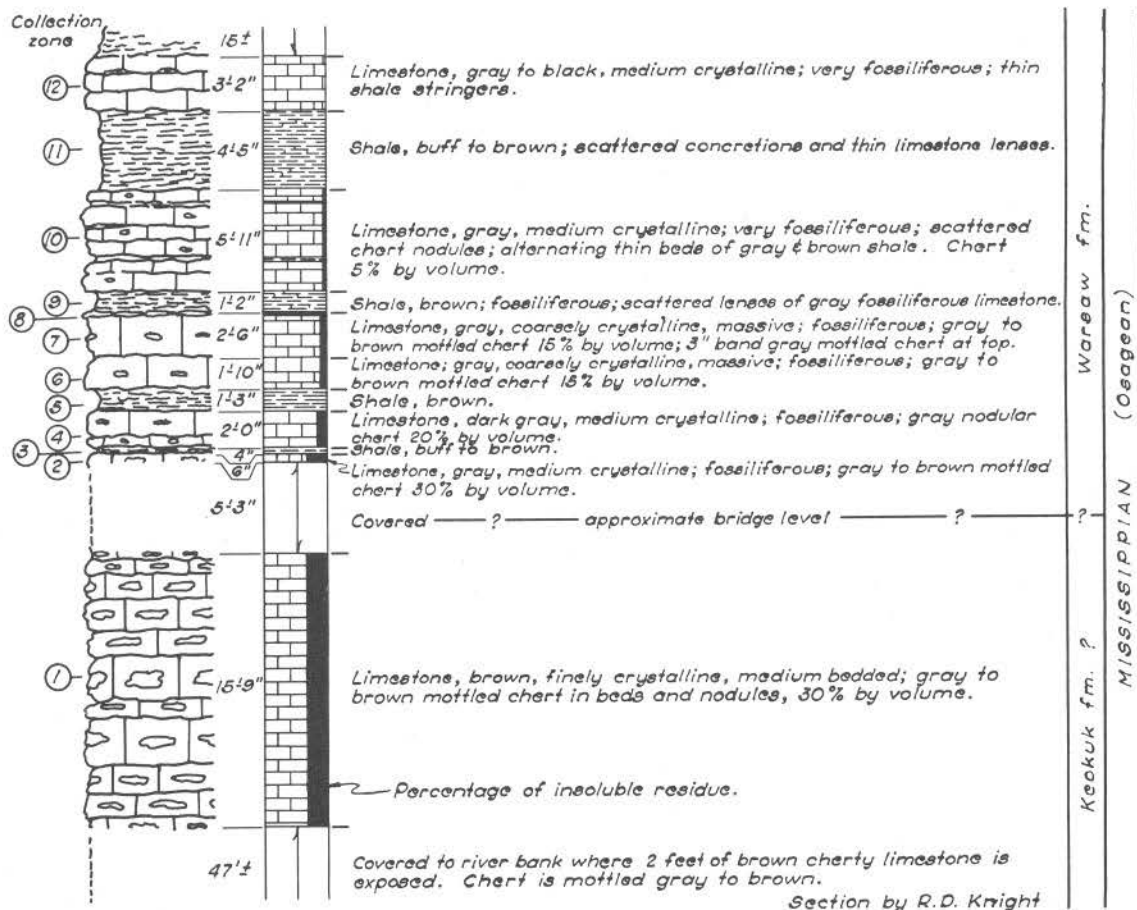 Collection
zone
15±
12
3'-2"
Limestone, gray to black, medium crystalline; very fossiliferous; thin
shale stringers.
11
4'-5"
Shale, buff to brown; scattered concretions and thin limestone lenses.
10
5'-11"
Limestone, gray, medium crystalline; very fossiliferous; scattered
chert nodules; alternating thin beds of gray & brown shale. Chert
5% by volume.
9
1'-2"
Shale, brown; fossiliferous; scattered lenses of gray fossiliferous limestone.
8
7
2'-6"
Limestone, gray, coarsely crystalline, massive; fossiliferous; gray to
brown mottled chert 15% by volume; 3" band gray mottled chert at top.
6
1'-10"
Limestone; gray, coarsely crystalline, massive; fossiliferous; gray to
brown mottled chert 15% by volume.
5
1'-3"
Shale, brown.
4
2'-0"
Limestone, dark gray, medium crystalline; fossiliferous; gray nodular
chert 20% by volume.
3
4"
Shale, buff to brown.
2
6"
Limestone, gray, medium crystalline; fossiliferous; gray to brown mottled
chert 30% by volume.
5'-3"
Covered — ? — approximate bridge level — ? — ? —
1
15'-9"
Limestone, brown, finely crystalline, medium bedded; gray to
brown mottled chert in beds and nodules, 30% by volume.
Percentage of insoluble residue.
47'±
Covered to river bank where 2 feet of brown cherty limestone is
exposed. Chert is mottled gray to brown.
Section by R.D. Knight
Warsaw fm.
Keokuk fm. ?
MISSISSIPPIAN (Osagean)